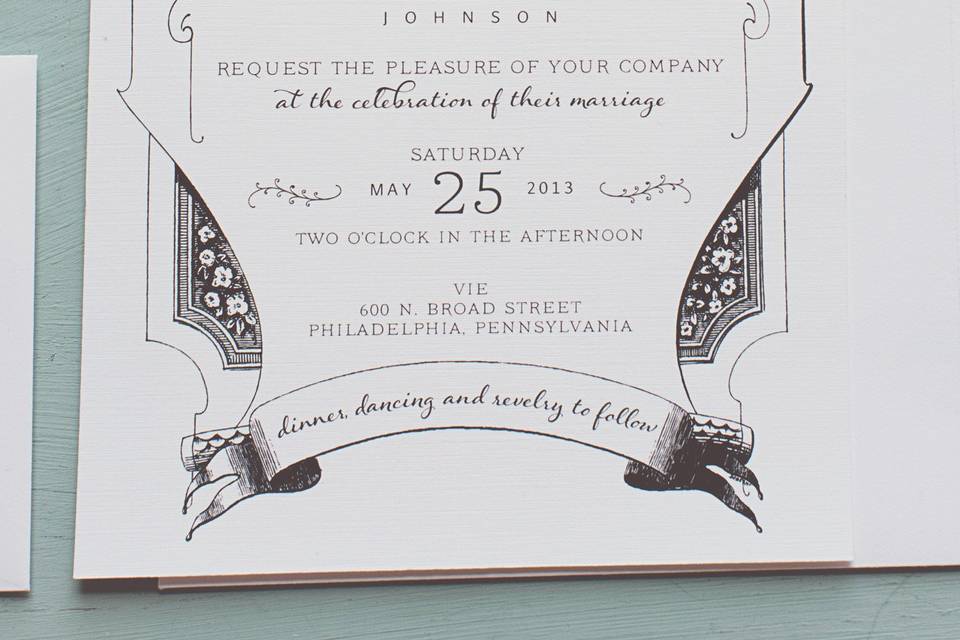 JOHNSON
REQUEST THE PLEASURE OF YOUR COMPANY
at the celebration of their marriage
SATURDAY
MAY 25 2013
TWO O'CLOCK IN THE AFTERNOON
VIE
600 N. BROAD STREET
PHILADELPHIA, PENNSYLVANIA
dinner, dancing and revelry to follow